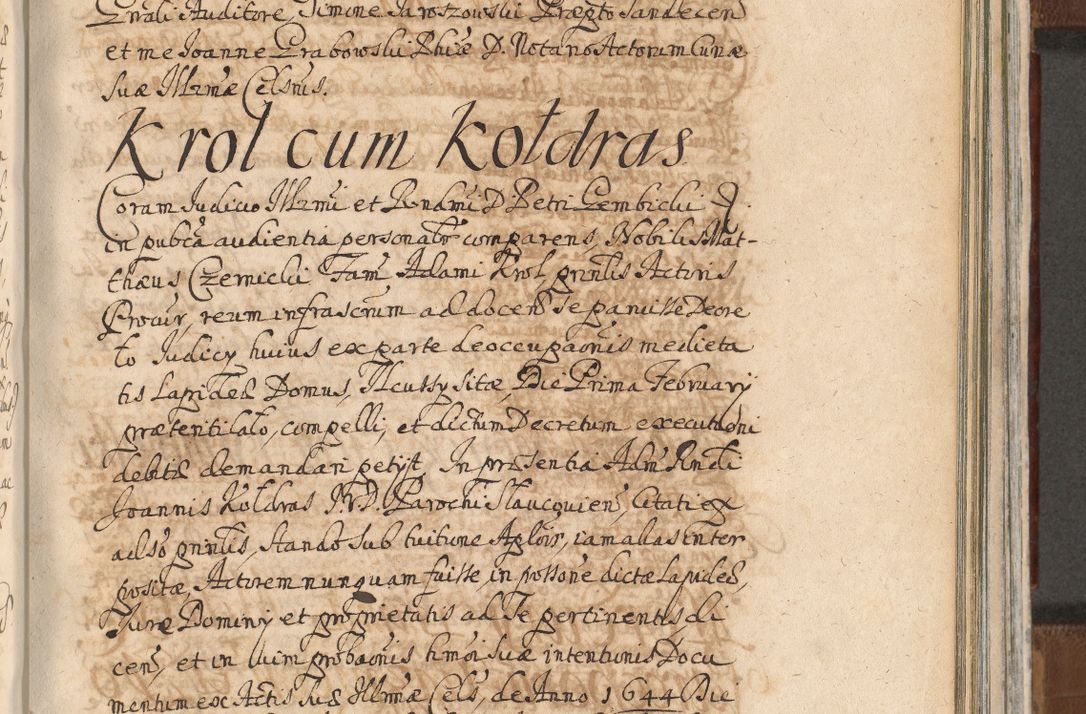 Gnrali Auditore, Simone Jaroszowski Præpto Sandecen
et me Joanne Grabowski Phiæ D. Notario Actorum Curiæ
suæ Illrmæ Celsnis.
Krol cum Kołdras
Coram Judicio Illrmi et Rndmi D Petri Gembicki
in pubca audientia personalr comparens, Nobilis Mat-
thæus Czernicki Fam Adami Krol, prntis Actoris
Procur, reum infrascrum ad docen se paruisse Decre
to Judicy huius ex parte deoccupaonis medieta
tis Lapideæ Domus, Ilcussy sitæ, Die Prima February
præteriti lato, compelli, et dictum Decretum executioni
debitæ demandari petyt, In præsentia Adm Rndi
Joannis Kołdras Parochi Slaucouien, citati ex
adso prntis, stando sub tuitione Aplois, iam alias inter
positæ, Actorem nunquam fuisse in possone dictæ Lapideæ,
Jure Dominy et proprietatis ad se pertinentis di
cen, et in uim probaonis hmoi suæ intentionis Docu
mentum ex Actis suæ Illrmæ Cels, de Anno 1644 Die